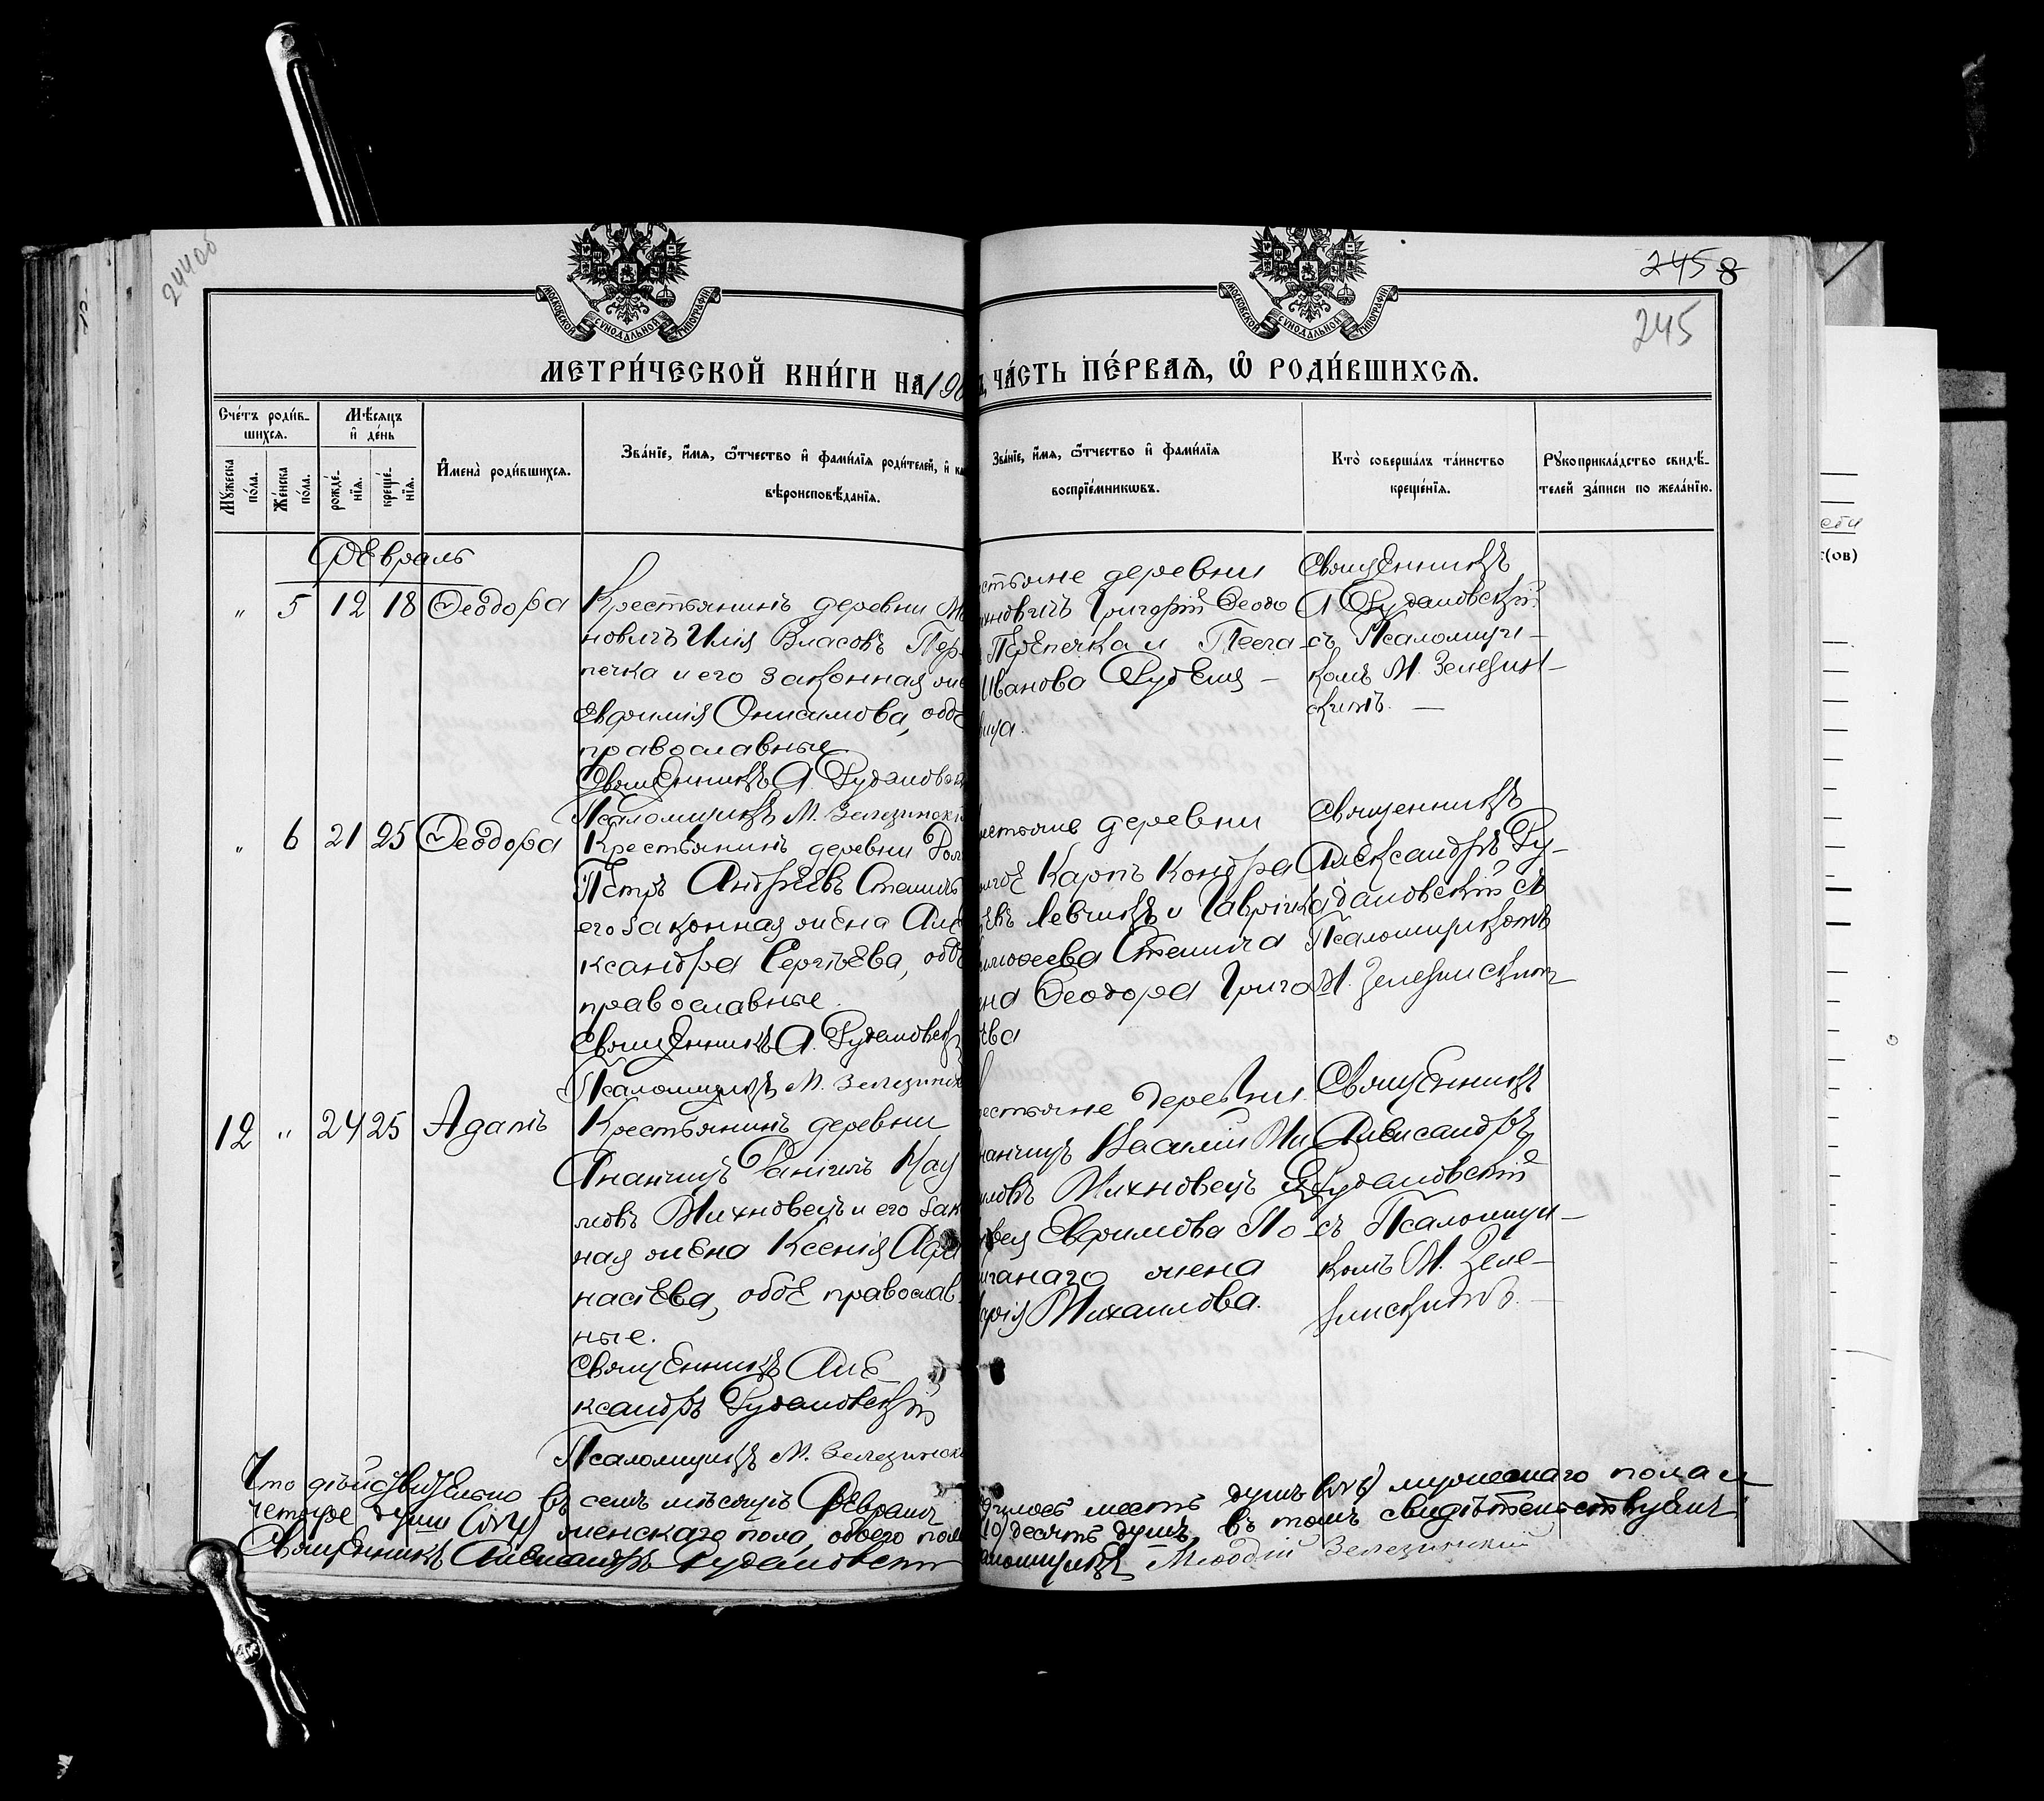 244об
245 8
245
МОСКОВСКОЙ СѴНОДАЛЬНОЙ ТИПОГРАФІИ
МОСКОВСКОЙ СѴНОДАЛЬНОЙ ТИПОГРАФІИ
МЕТРИ́ЧЕСКОЙ КНИ́ГИ НА 190
ЧА́СТЬ ПЕ́РВАѦ, Ѽ РОДИ́ВШИХСѦ.
Сче́тъ роди́в-
шихсѧ.
Мꙋжеска по́ла.
Же́нска по́ла.
Мѣ́сѧцъ
и҆ де́нь
рожде́-
нїѧ.
креще́-
нїѧ.
И҆мена̀ роди́вшихсѧ.
Зва́нїе, и҆́мѧ, ѻ҆́тчество и҆ фами́лїѧ роди́телей, и҆ ка
вѣроисповѣ́данїѧ.
Зва́нїе, и҆́мѧ, ѻ҆́тчество и҆ фами́лїѧ
воспрїе́мникѡвъ.
Кто̀ соверша́лъ та́инство
креще́нїѧ.
Рꙋкоприкла́дство свидѣ́-
телей за́писи по жела́нїю.
Февраль
" 5 12 18 Ѳеодора
Крестьянинъ деревни М
новичъ Илія Власовъ Пере-
печка и его законная же
Евфимія Онисимова, обое
православные
Священникъ А. Рудаковск
Псаломщикъ М. Зелезинскі
стьяне деревни
хновичъ Григорій Ѳеодо
Перепечка и Пела
Иванова Руденя –
вица.
Священникъ
А Рудаковскій
съ Псаломщи-
комъ М. Зелезин-
скимъ. —
" 6 21 25 Ѳеодора
Крестьянинъ деревни Дол
Петръ Андреевъ Стешиъ
его законная жена Але
ксандра Сергѣева, обое
православные.
Священникъ А. Рудаковск
Псаломщикъ М. Зелезинск
естьяне деревни
Карпъ Кондра
Левчикъ и Гаврі
имоѳеева Стешица
на Ѳеодора Григо
ева
Священникъ
Александръ Ру-
даковскій съ
Псаломщикомъ
М. Зелезинскимъ
12 " 24 25 Адамъ
Крестьянинъ деревни
Ананчицъ Даніилъ Нау
мовъ Михновецъ и его зак
ная жена Ксенія Аѳа
насіева, обое православ-
ные.
Священникъ Але-
ксандръ Рудаковскій
Псаломщикъ М. Зелезинск
естьяне деревни
нанчицъ Василій Ми
Михновецъ
Евфимова По
жена
Михаилова.
Священникъ
Александръ
Рудаковскій
съ Псаломщи-
комъ М. Зеле-
зинскимъ. –
Что дѣйствительно въ семъ мѣсяцѣ Февралѣ
четыре души (№4) женскаго пола, обоего пола
Священникъ Александръ Рудаковскій
дилось шесть душъ (№6) мужескаго пола и
(10) десять душъ, въ томъ свидѣтельствуемъ
аломщикъ Меѳодій Зелезинскій